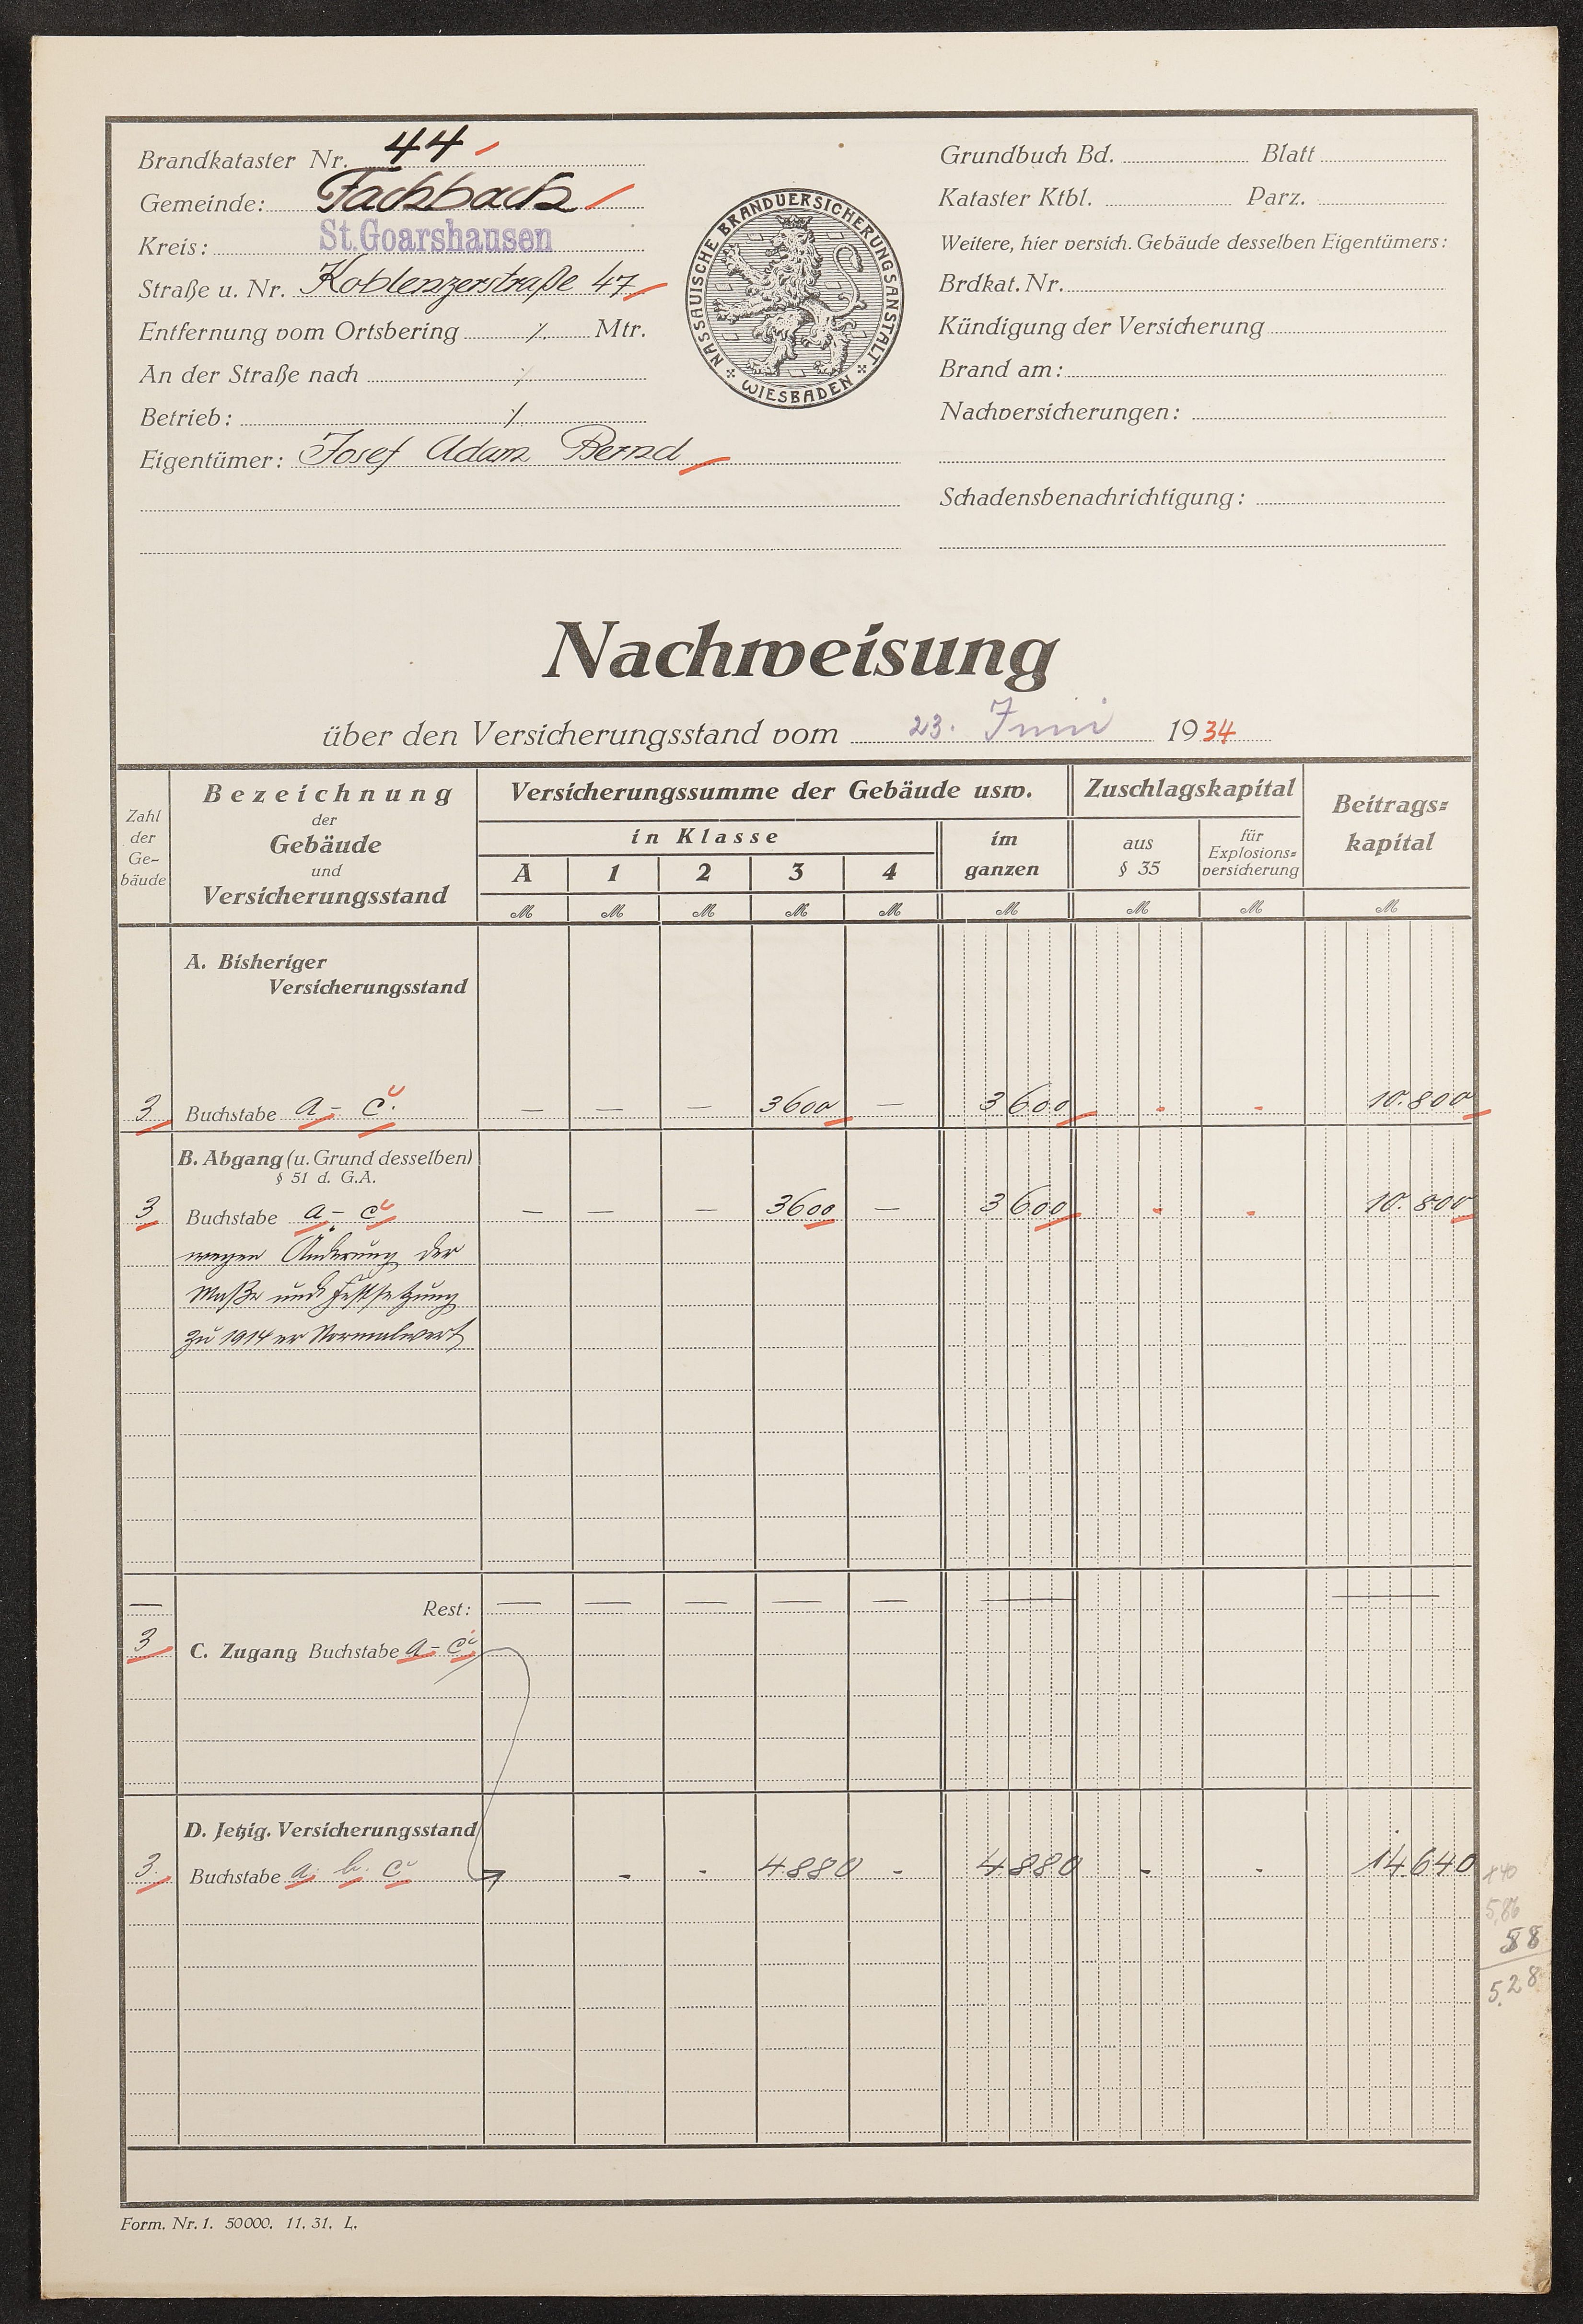 Brandkataster Nr. 44
Gemeinde: Fachbach
Kreis: St. Goarshausen
Straße u. Nr. Koblenzerstraße 47
Entfernung vom Ortsbering ./. Mtr.
An der Straße nach ./.
Betrieb: ./.
Eigentümer: Josef Adam Bernd
NASSAUISCHE BRANDVERSICHERUNGSANSTALT
WIESBADEN
Grundbuch Bd. Blatt
Kataster Ktbl. Parz.
Weitere, hier versich. Gebäude desselben Eigentümers:
Brdkat. Nr.
Kündigung der Versicherung
Brand am:
Nachversicherungen:
Schadensbenachrichtigung:
Nachweisung
über den Versicherungsstand vom 23. Juni 1934
Zahl der Ge-bäude
Bezeichnung
der
Gebäude
und
Versicherungsstand
Versicherungssumme der Gebäude usw.
in Klasse
A 1 2 3 4
im ganzen
Zuschlagskapital
aus § 35
für Explosions=versicherung
Beitrags=kapital
M M M M M M M M M
A. Bisheriger
Versicherungsstand
3 Buchstabe a - c. — — — 3600 — 3600 - - 10.800
B. Abgang (u. Grund desselben)
§ 51 d. G.A.
3 Buchstabe a - c — — — 3600 — 3600 - - 10.800
wegen Änderung der
Maße und Festsetzung
zu 1914er Normalwert
— Rest: — — — — — — —
3 C. Zugang Buchstabe a - c
D. Jetzig. Versicherungsstand
3. Buchstabe a. b. c - - 4880 - 4880 - - 14.640
5,86
58
5,28
Form. Nr. 1. 50000. 11. 31. L.